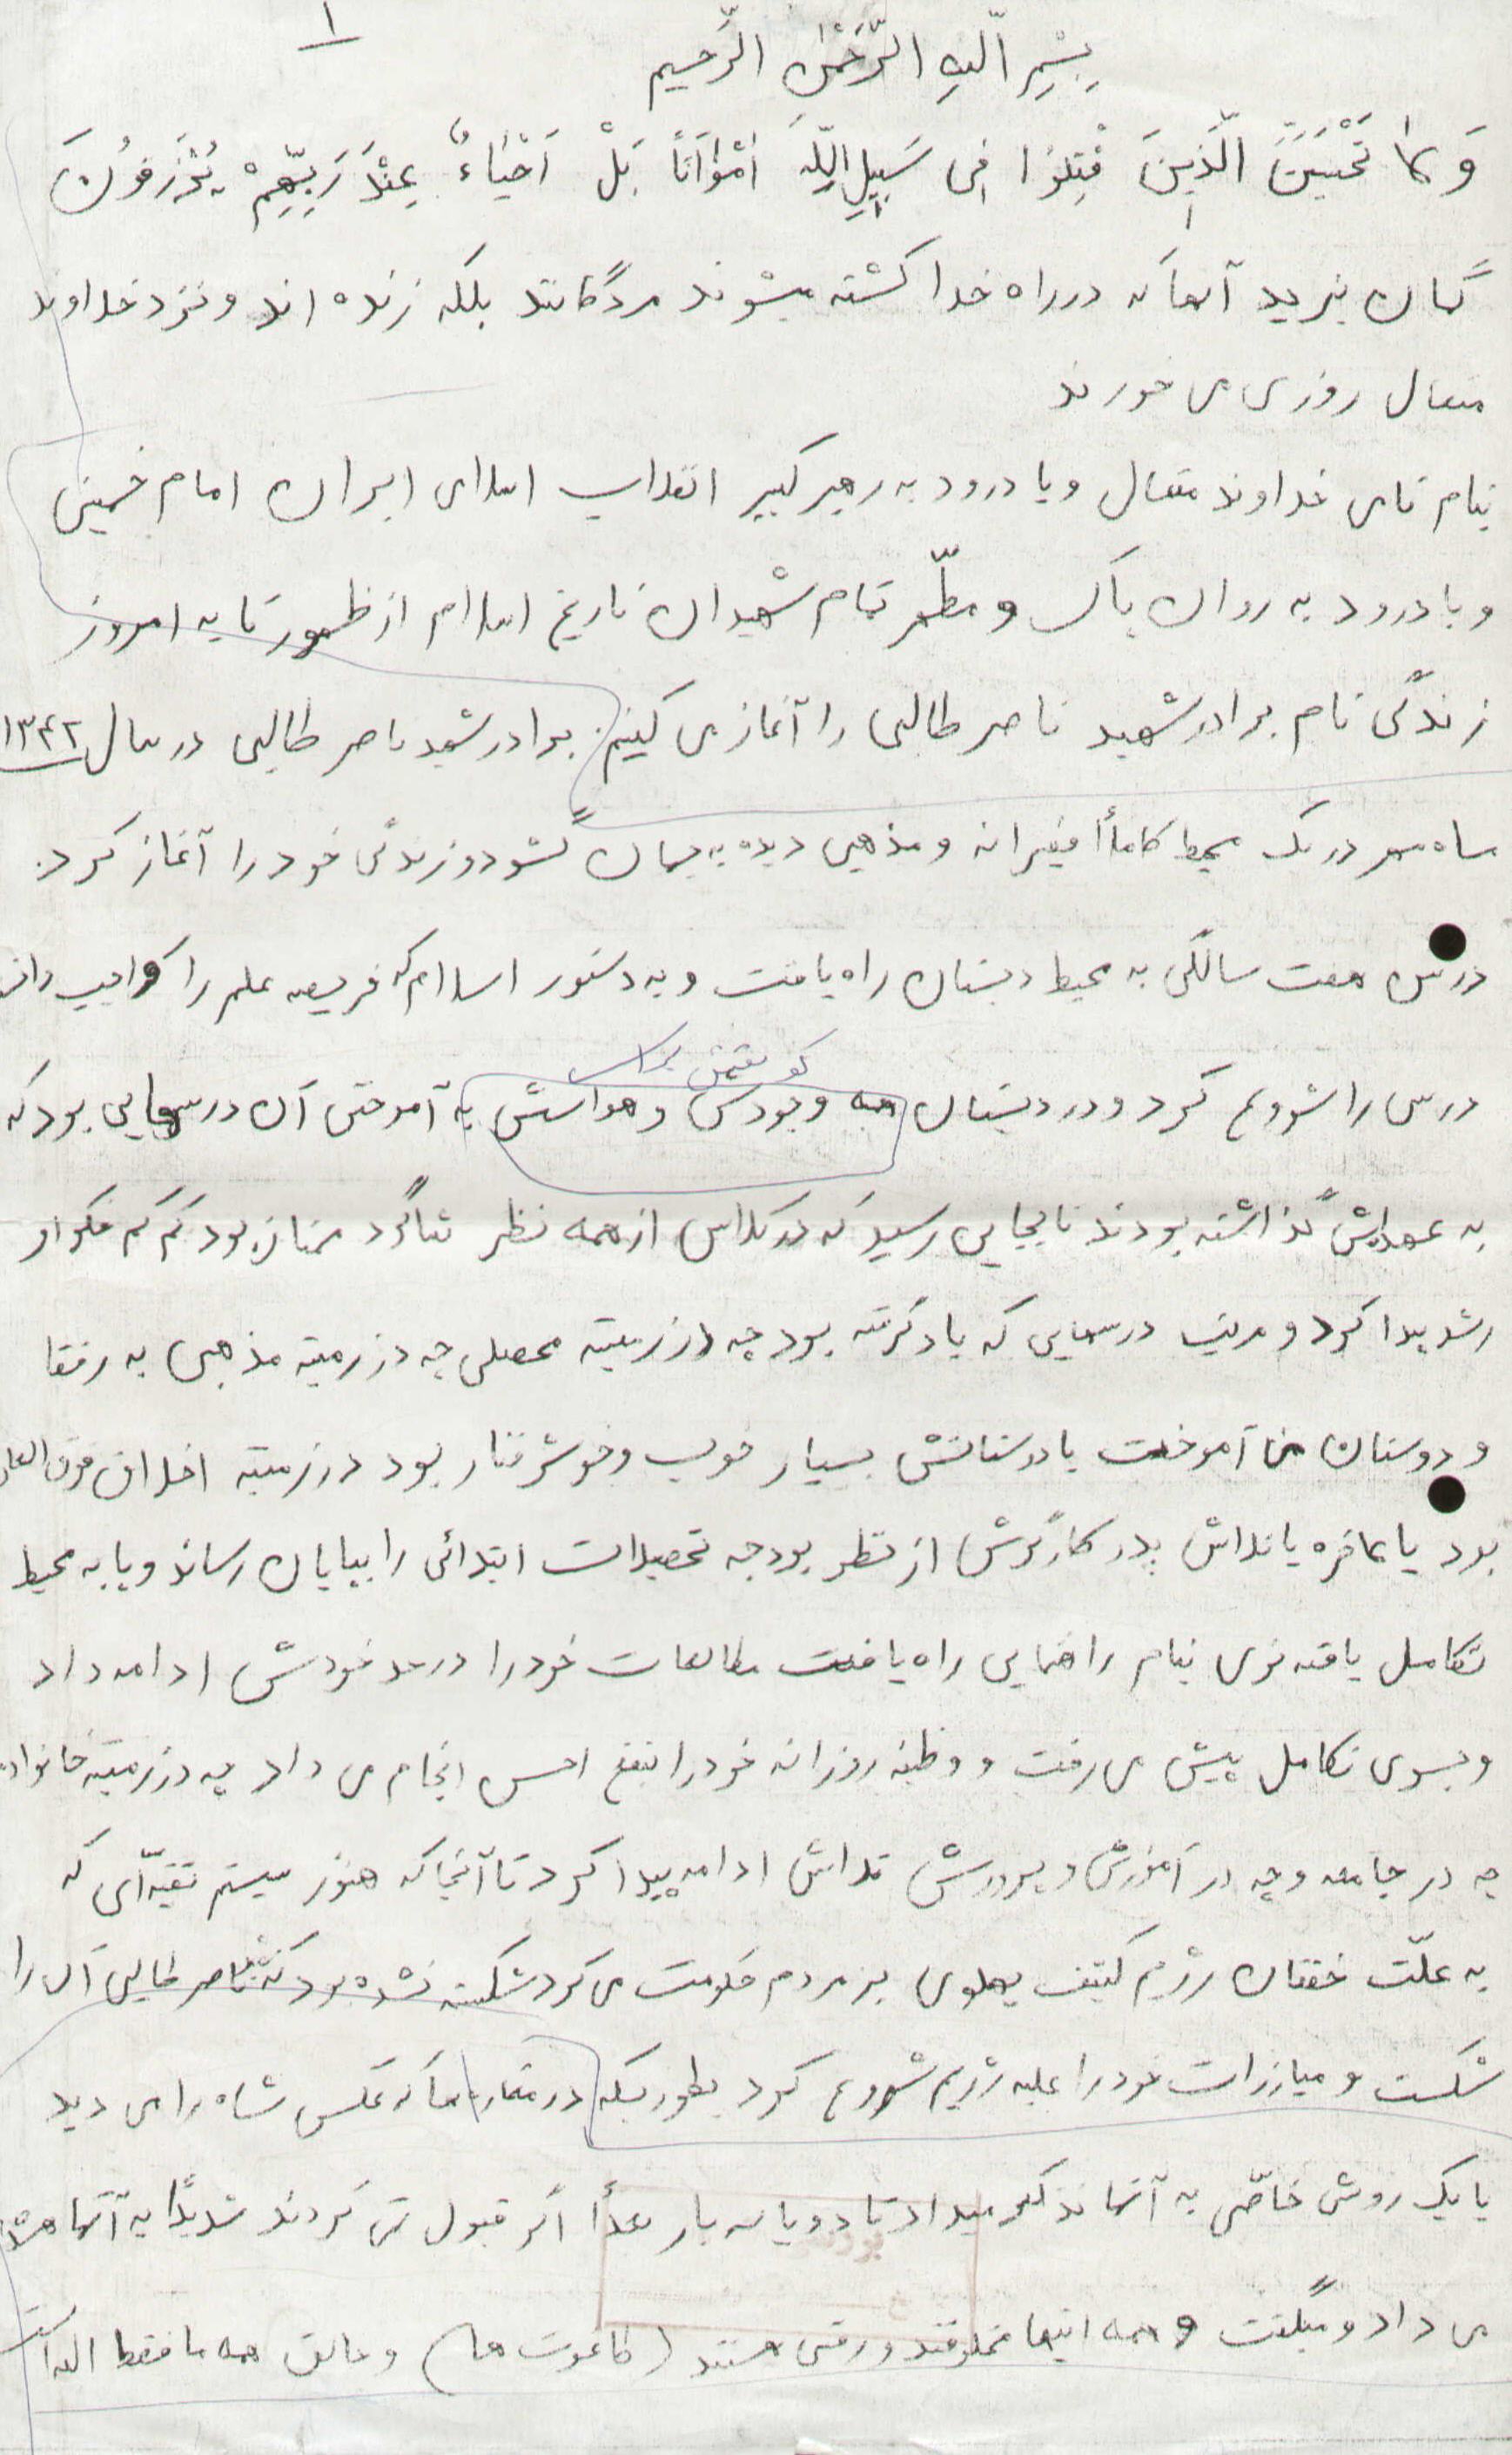 ۱
بِسْمِ اللّهِ الرَّحْمٰنِ الرَّحیم
وَلا تَحْسَبَنَّ الَّذینَ قُتِلوُا فِی سَبیلِ اللّهِ اَمْواتاً بَلْ اَحْیاءٌ عِنْدَ رَبِّهِمْ یُرْزَقوُنَ
گمان نبرید آنها که در راه خدا کشته میشوند مردگانند بلکه زنده اند و نزد خداوند
متعال روزی می خورند
بنام نامی خداوند متعال و با درود به رهبر کبیر انقلاب اسلامی ایران امام خمینی
و با درود به روان پاک و مطّهر تمام شهیدان تاریخ اسلام از ظهور تا به امروز
زندگی نام برادر شهید ناصر طالبی را آغاز می کنیم. برادر شهید ناصر طالبی در سال ۱۳۴۲
ماه مهر در یک محیط کاملاً فقیرانه و مذهبی دیده به جهان گشود و زندگی خود را آغاز کرد.
در سن هفت سالگی به محیط دبستان راه یافت و به دستور اسلام که فریضه علم را واجب
درس را شروع کرد و در دبستان همه وجودش و هواسش به آموختن آن درسهایی بود که
کوشش برای
به عهده‌اش گذاشته بودند تا بجایی رسید که در کلاس از همه نظر شاگرد ممتاز بود کم کم فکر او
رشد پیدا کرد و مرتب درسهایی که یاد گرفته بود چه در زمینه محصلی چه در زمینه مذهبی به رفقا
و دوستان می آموخت با دوستانش بسیار خوب و خوشرفتار بود در زمینه اخلاق فوق العاده
بود بالاخره با تلاش پدر کارگرش از نظر بودجه تحصیلات ابتدائی را بپایان رساند و پا به محیط
تکامل یافته تری بنام راهنمایی راه یافت مطالعات خود را در حد خودش ادامه داد
و بسوی تکامل پیش می رفت و وظیفه روزانه خود را بنفع احسن انجام می داد چه در زمینه خانواده
چه در جامعه و چه در آموزش و پرورش تلاش ادامه پیدا کرد تا آنجا که هنوز سیستم تقیّه‌ای که
به علّت خفقان رژیم کثیف پهلوی بر مردم حکومت می کرد شکسته نشده بود که ناصر طالبی آن را
شکست و مبارزات خود را علیه رژیم شروع کرد بطوریکه در مغازه‌ها که عکس شاه را می دید
با یک روش خاصّی به آنها تذکر میداد تا دو یا سه بار بعداً اگر قبول نمی کردند شدیداً به آنها
می داد و میگفت همه اینها مخلوقند و رفتنی هستند (طاغوت ها) و خالق همه ما فقط الله است